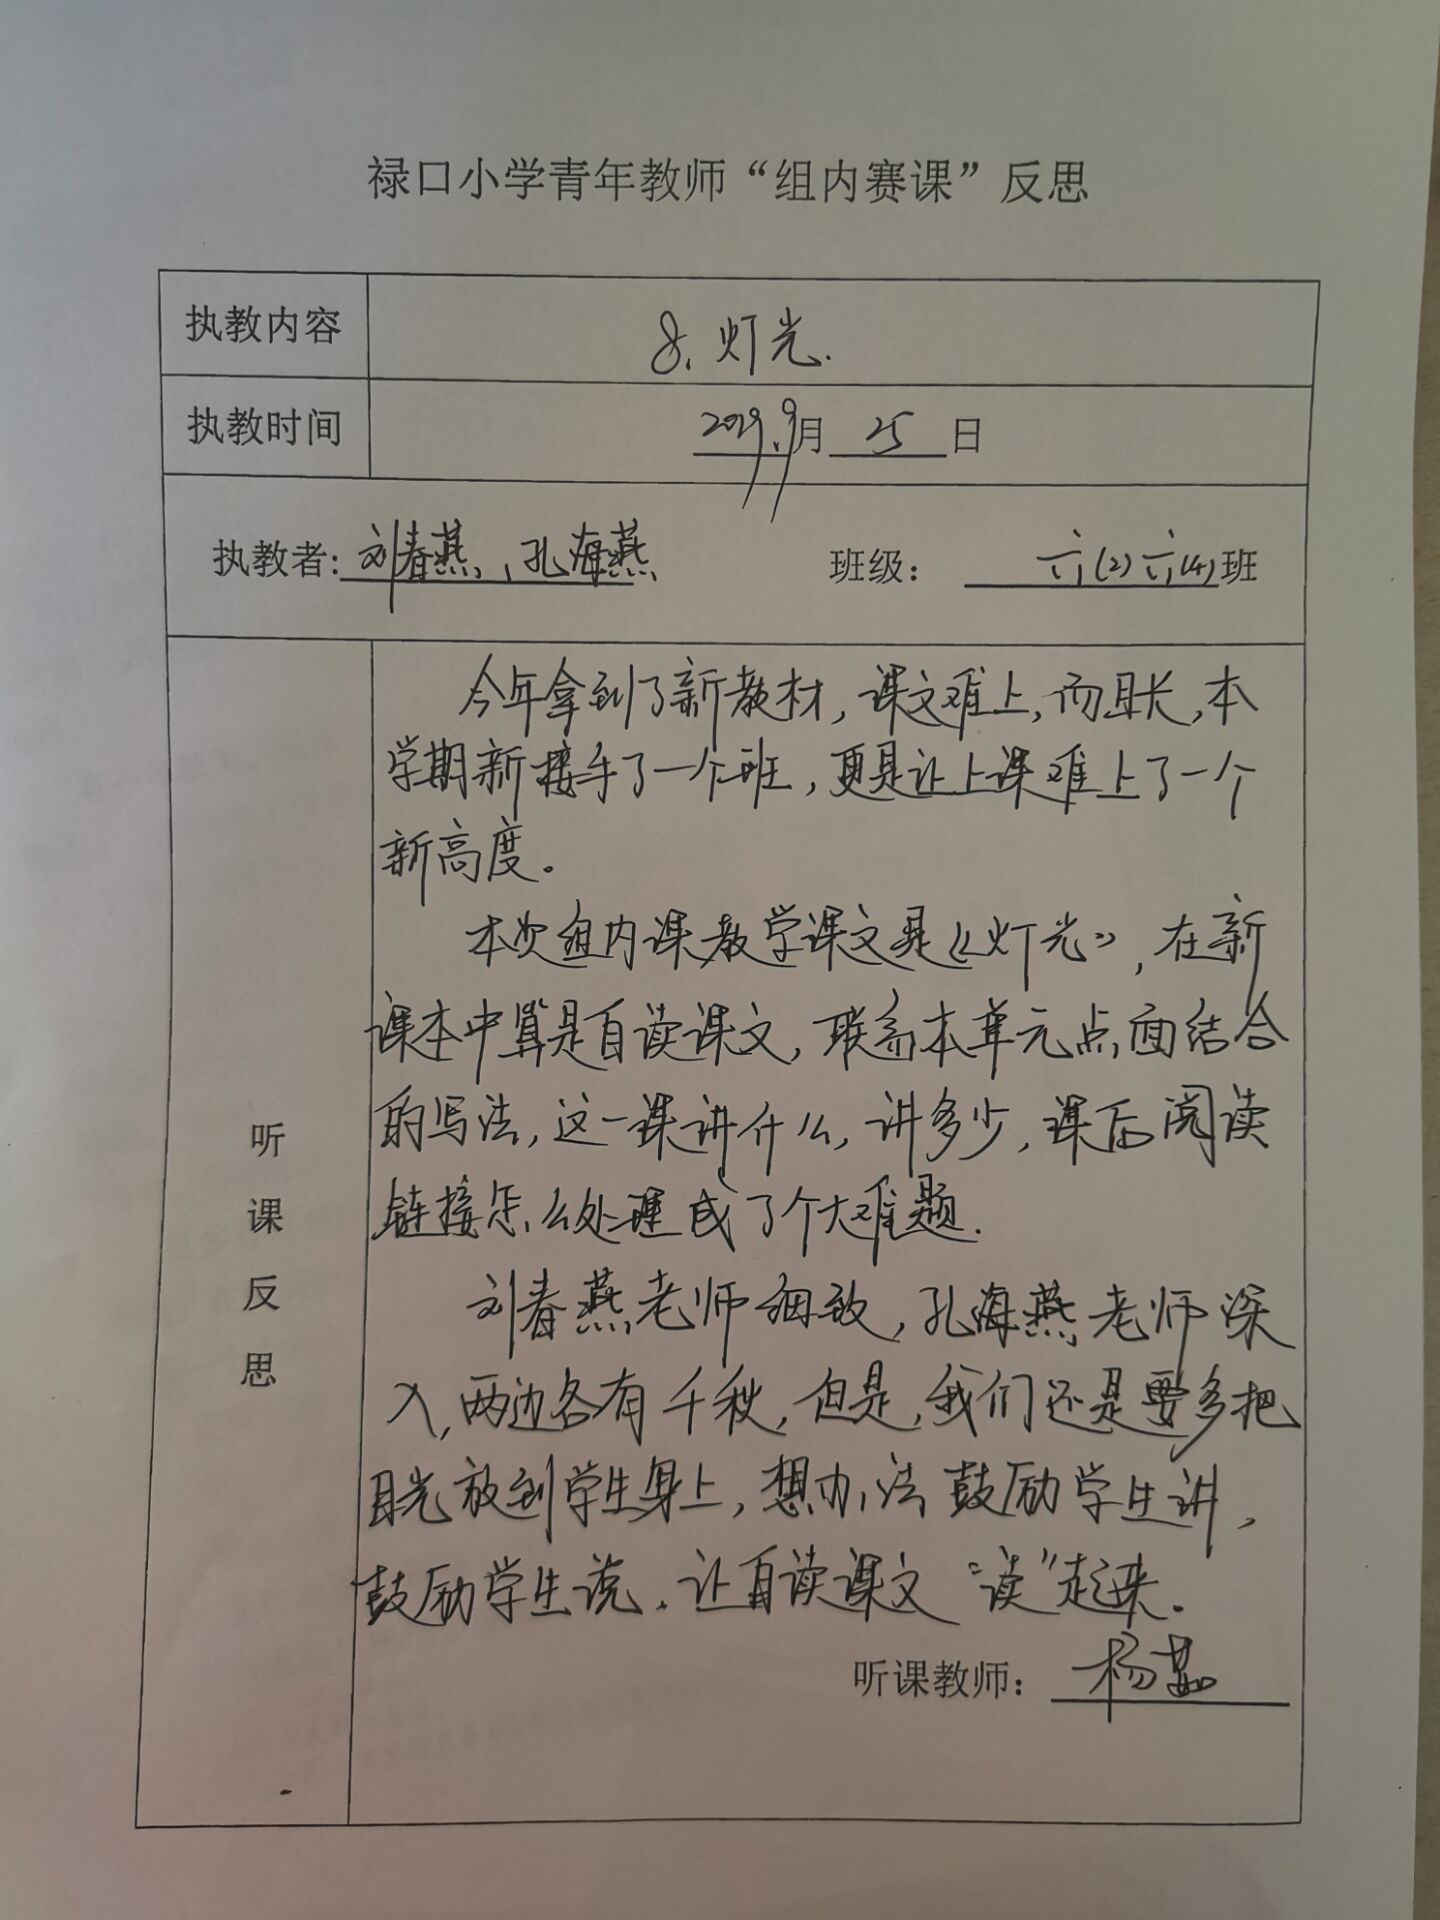 禄口小学青年教师“组内赛课”反思
执教内容 8. 灯光.
执教时间 2019.9月 25 日
执教者: 刘春燕、孔海燕 班级： 六(2)六(4)班
今年拿到了新教材，课文难上，而且长，本
学期新接手了一个班，更是让上课难上了一个
新高度。
本次组内课教学课文是《灯光》，在新
课本中算是自读课文，联系本单元点面结合
的写法，这一课讲什么，讲多少，课后阅读
链接怎么处理成了个大难题.
刘春燕老师细致，孔海燕老师深
入，两边各有千秋，但是，我们还是要多把
目光放到学生身上，想办法鼓励学生讲，
鼓励学生说．让自读课文“读”起来。
听课反思
听课教师： 杨